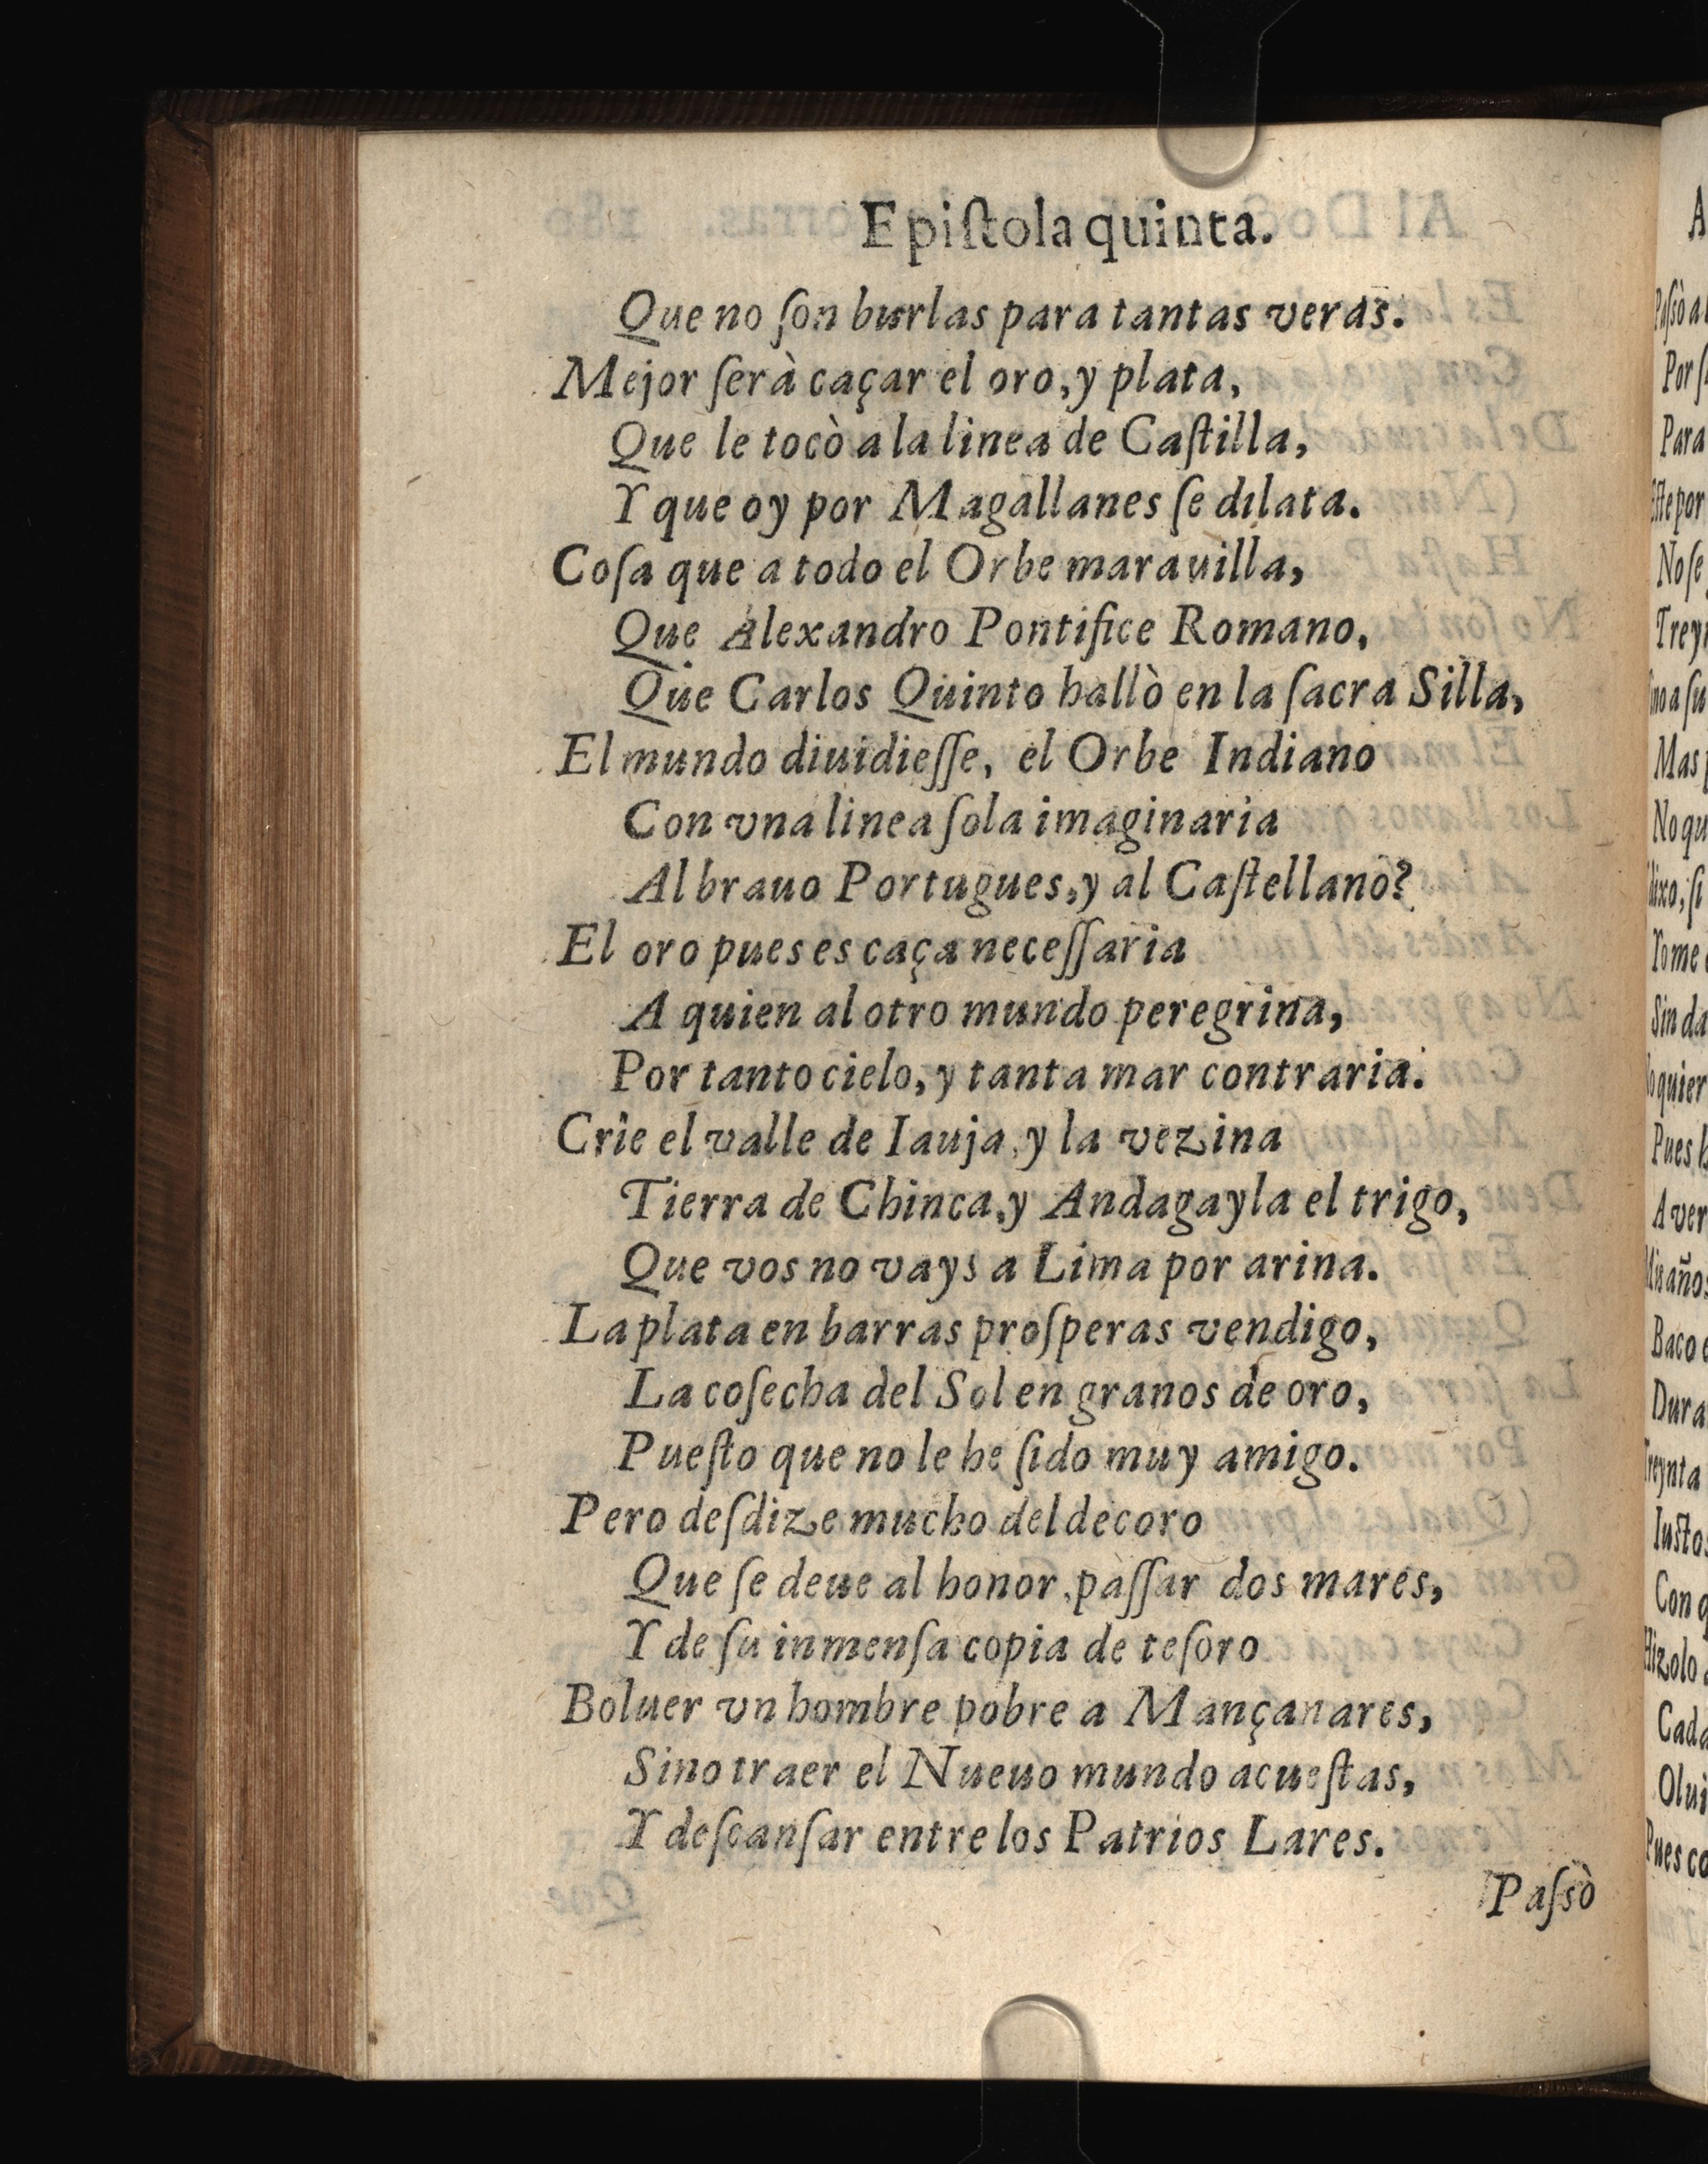 Epiſtola quinta.
Que no ſon burlas para tantas veras.
Mejor ſerà caçar el oro, y plata,
Que le tocò a la linea de Caſtilla,
Y que oy por Magallanes ſe dilata.
Coſa que a todo el Orbe marauilla,
Que Alexandro Pontifice Romano,
Que Carlos Quinto hallò en la ſacra Silla,
El mundo diuidieſſe, el Orbe Indiano
Con vna linea ſola imaginaria
Al brauo Portugues, y al Caſtellano?
El oro pues es caça neceſſaria
A quien al otro mundo peregrina,
Por tanto cielo, y tanta mar contraria.
Crie el valle de Iauja, y la vezina
Tierra de Chinca, y Andagayla el trigo,
Que vos no vays a Lima por arina.
La plata en barras proſperas vendigo,
La coſecha del Sol en granos de oro,
Pueſto que no le he ſido muy amigo.
Pero deſdize mucho del decoro
Que ſe deue al honor, paſſar dos mares,
Y de ſu inmenſa copia de teſoro
Boluer vn hombre pobre a Mançanares,
Sino traer el Nueuo mundo acueſtas,
Y deſcanſar entre los Patrios Lares.
Paſsò